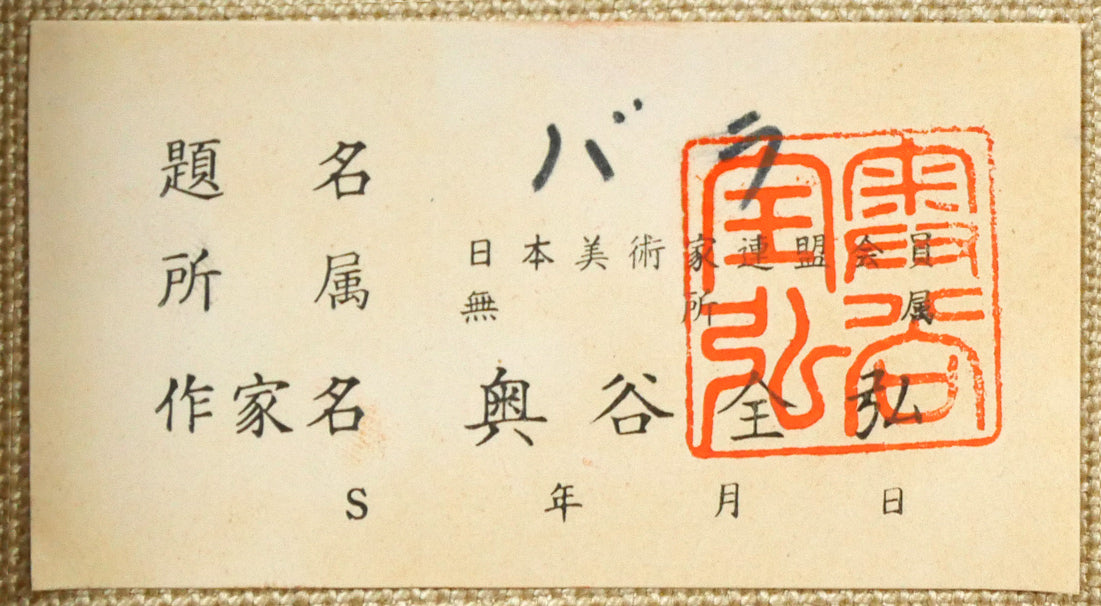 題名 バラ
所属 日本美術家連盟会員
無所属
作家名 奥谷全弘
S 年 月 日
奥谷全弘